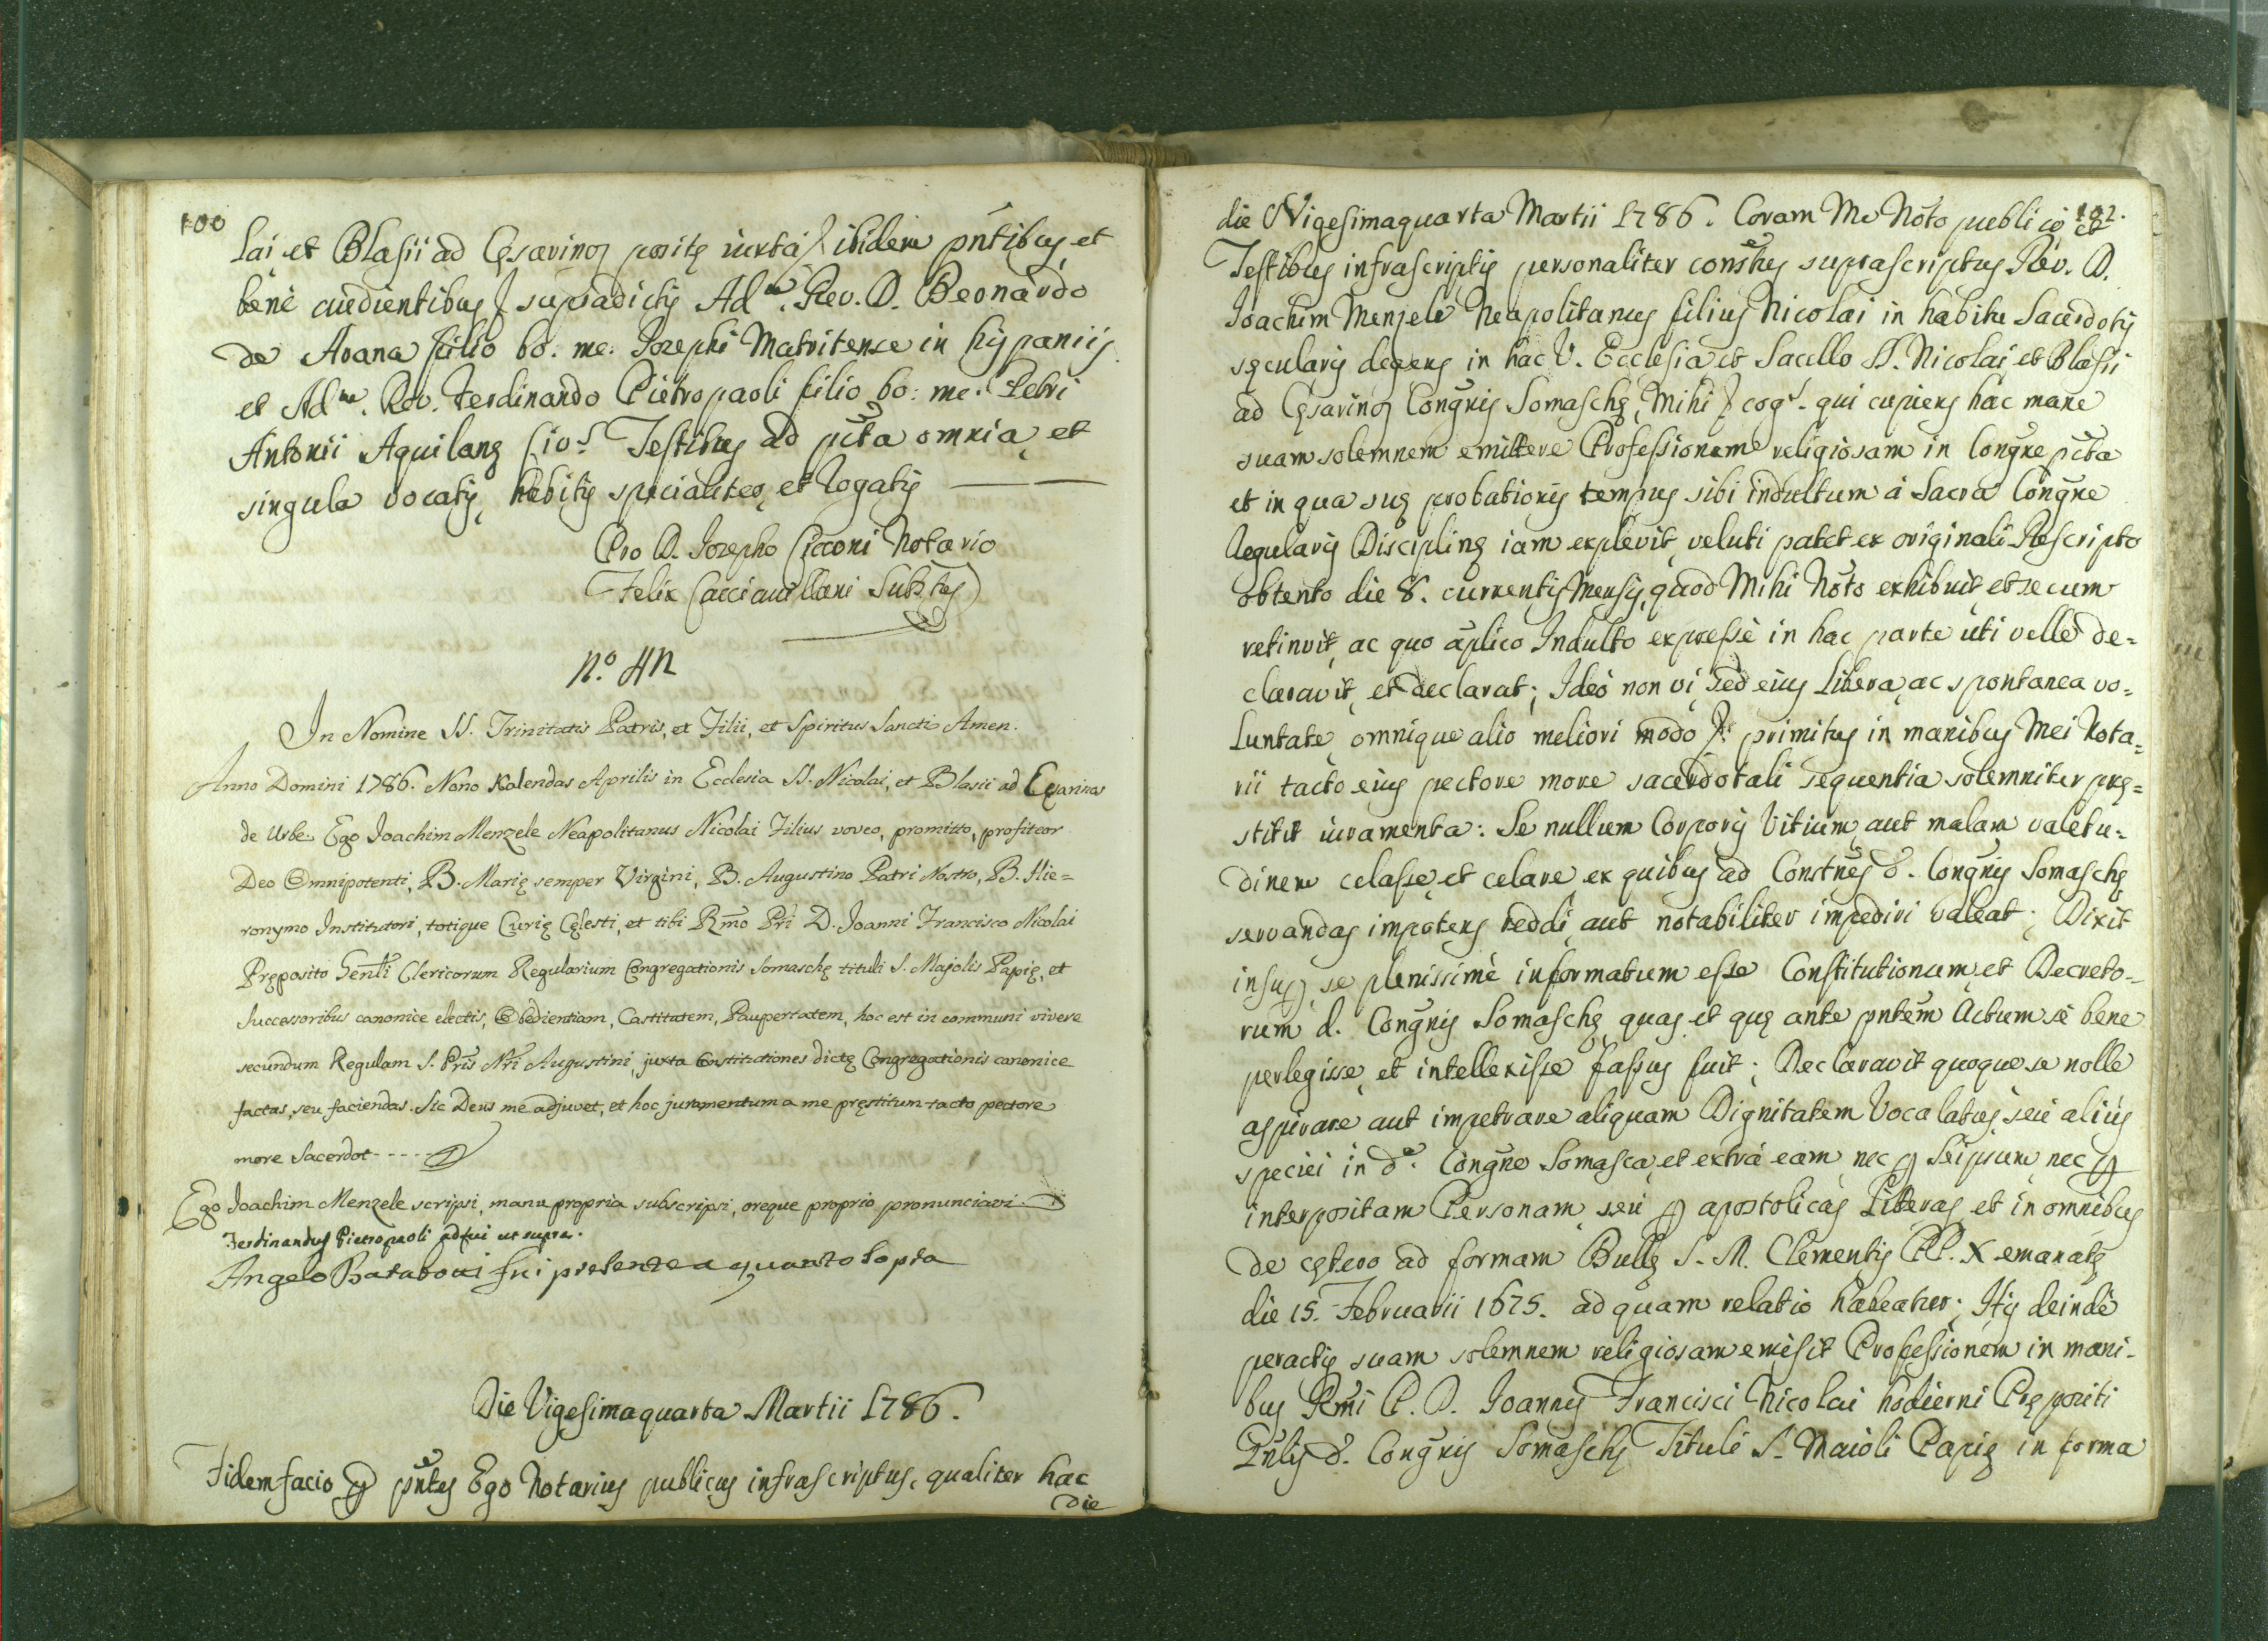 100
lai et Blasii ad Cęsarinos positę iuxta ibidem pñtibus, et
benè audientibus supradictis Adm. Rev. D. Beonardo
de Arana filio bo: me: Iosephi Matritense in hispaniis
et Adm. Rev. Ferdinando Pietropaoli filio bo: me: Petri
Antonii Aquilanę Testibus ad pñta omnia, et
singula vocatis, habitis specialiter, et rogatis
Pro D. Iosepho Cicconi Notario
Felix Cacciavillani Substus
N.º
In Nomine SS. Trinitatis Patris, et Filii, et Spiritus Sancti Amen.
Anno Domini 1786. Nono Kalendas Aprilis in Ecclesia SS. Nicolai, et Blasii ad Cęsarinos
de Urbe Ego Joachim Menzele Neapolitanus Nicolai Filius voveo, promitto, profiteor
Deo Omnipotenti, B. Marię semper Virgini, B. Augustino Patri Nostro, B. Hie=
ronymo Institutori, totique Curię Cęlesti, et tibi Rmo Pri D. Joanni Francisco Nicolai
Pręposito Genli Clericorum Regularium Congregationis Somaschę tituli S. Majolis Papię, et
Successoribus canonice electis, Obedientiam, Castitatem, Paupertatem, hoc est in communi vivere
secundum Regulam S. Pris Nri Augustini, juxta Constitutiones dictę Congregationis canonice
factas, seu faciendas. Sic Deus me adjuvet, et hoc juramentum a me pręstitum tacto pectore
more Sacerdot- - - -
Ego Joachim Menzele scripsi, manu propria subscripsi, oreque proprio pronunciavi
Ferdinandus Pietropaoli adfui ut supra.
Angelo fui presente a quanto sopra
Die Vigesimaquarta Martii 1786.
Fidem facio p pñtes Ego Notarius publicus infrascriptus, qualiter hac
die
102.
die Vigesimaquarta Martii 1786. Coram Me Noto publico et
Testibus infrascriptis personaliter consťus suprascriptus Rev. D.
Ioachim Menzele Neapolitanus filius Nicolai in habitu Sacerdotis
sęcularis degens in hac V. Ecclesia et Sacello SS. Nicolai et Blasii
ad Cęsarinos Congñis Somaschę, Mihi cogs. qui cupiens hac mane
suam solemnem emittere Professionem religiosam in Congñe pcta
et in qua suę probationis tempus sibi indultum à Sacra Congñe
Regularis Disciplinę iam explevit, veluti patet ex originali Rescripto
obtento die 8. currentis Mensis, quod Mihi Noto exhibuit, et secum
retinuit, ac quo aplico Indulto expressè in hac parte uti velle de=
claravit, et declarat; Ideò non vi, sed eius Libera, ac spontanea vo=
luntate, omnique alio meliori modo primitus in manibus Mei Nota=
rii tacto eius pectore more sacerdotali sequentia solemniter prę=
stitit iuramenta: Se nullum Corporis Vitium, aut malam valetu=
dinem celasse, et celare ex quibus ad Constñes d. Congñis Somaschę
servandas impotens reddi, aut notabiliter impediri valeat; Dixit
insup, se plenissimè informatum esse Constitutionum, et Decreto=
rum d. Congñis Somaschę, quas, et quę ante pñtem Actum sè bene
perlegisse, et intellexisse fassus fuit; Declaravit quoque se nolle
aspirare aut impetrare aliquam Dignitatem Vocalatus, seù aliús
speciei in da. Congñe Somasca, et extrà eam, nec p Seipsum, nec p
interpositam Personam, seù p apostolicas Literas, et in omnibus
de cętero ad formam Bullę S. M. Clementis PP. X emanatę
die 15. Februarii 1675. ad quam relatio habeatur; Hìs deindè
peractis suam solemnem religiosam emisit Professionem in mani-
bus Rmi P. D. Ioannis Francisci Nicolai hodierni Prępositi
Gñlis d. Congñis Somaschę Tituli S. Maioli Papię in forma